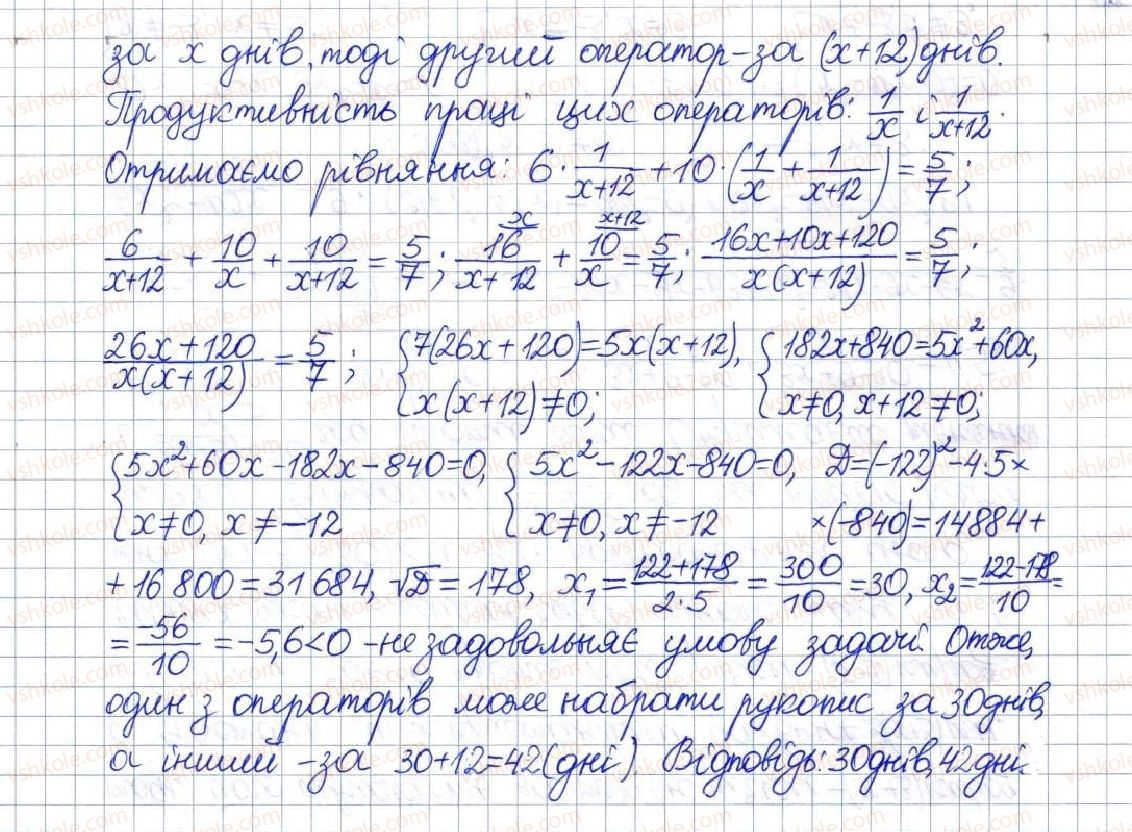 за x днів, тоді другий оператор – за (x+12) днів.
Продуктивність праці цих операторів: 1/x і 1/(x+12).
Отримаємо рівняння: 6 · 1/(x+12) + 10 · (1/x + 1/(x+12)) = 5/7;
6/(x+12) + 10/x + 10/(x+12) = 5/7; 16/(x+12) (x) + 10/x (x+12) = 5/7; (16x+10x+120)/(x(x+12)) = 5/7;
(26x+120)/(x(x+12)) = 5/7; { 7(26x+120)=5x(x+12), { 182x+840=5x²+60x,
x(x+12)≠0; x≠0, x+12≠0;
{ 5x²+60x-182x-840=0, { 5x²-122x-840=0, D=(-122)²-4·5×
x≠0, x≠-12 x≠0, x≠-12 ×(-840)=14884+
+16 800=31 684, √D=178, x₁=(122+178)/(2·5)=300/10=30, x₂=(122-178)/10=
=-56/10=-5,6<0 - не задовольняє умову задачі. Отже,
один з операторів може набрати рукопис за 30 днів,
а інший – за 30+12=42 (дні). Відповідь: 30 днів, 42 дні.